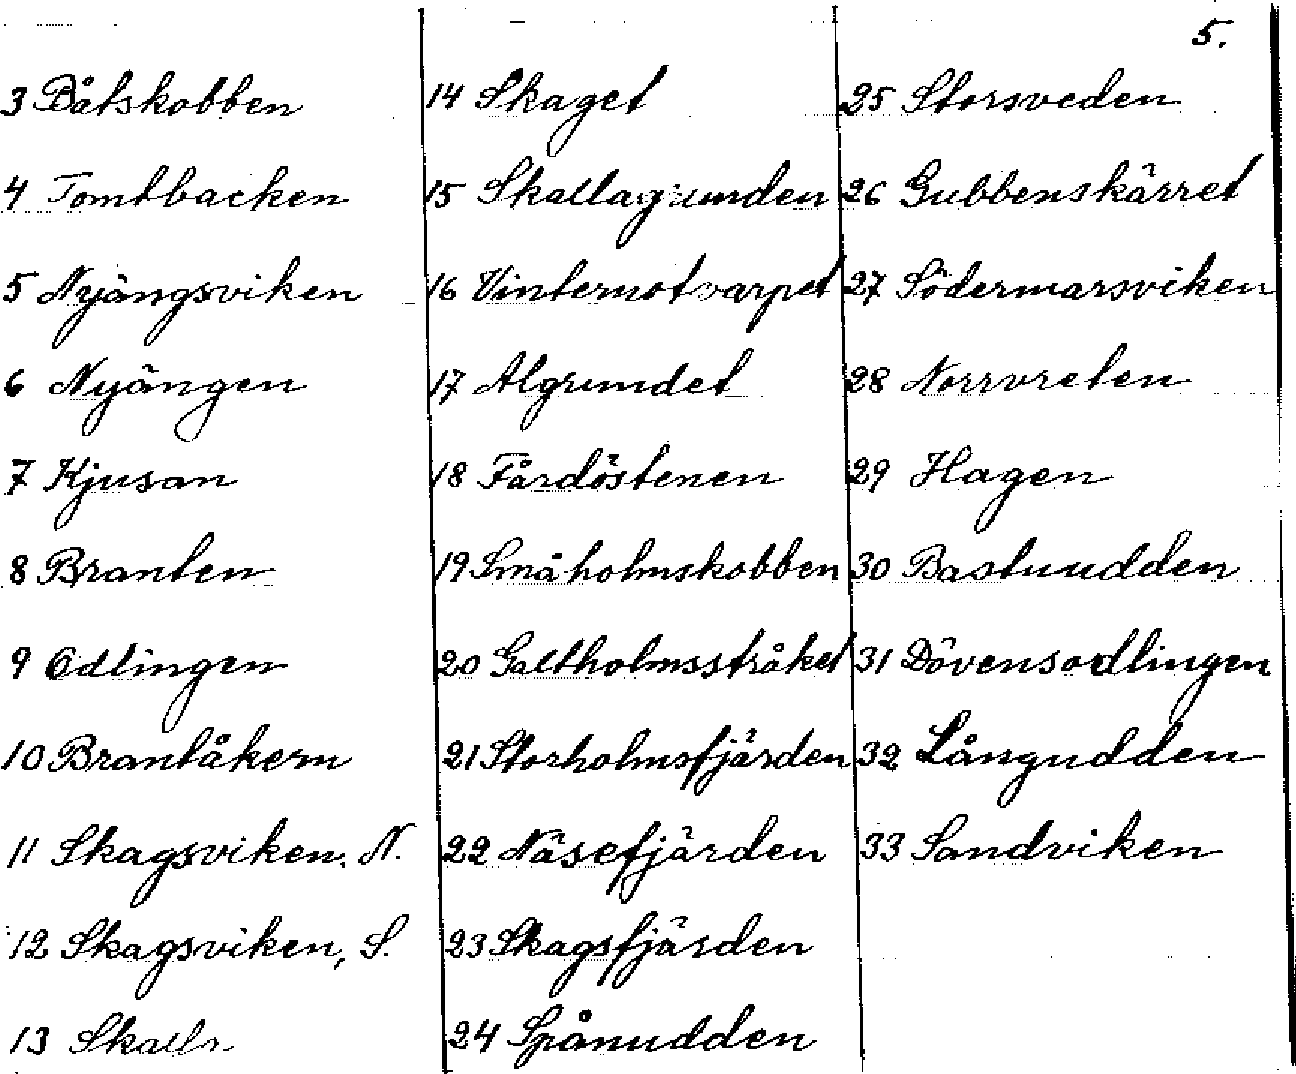 5.
3 Båtskobben
4 Tomtbacken
5 Nyängsviken
6 Nyängen
7 Kjusan
8 Branten
9 Odlingen
10 Brantåkern
11 Skagsviken, N.
12 Skagsviken, S.
13
14 Skaget
15 Skallagrunden
16 Vinternotvarpet
17 Algrundet
18 Fårdöstenen
19 Småholmskobben
20 Galtholmsstråket
21 Storholmsfjärden
22 Näsefjärden
23 Skagsfjärden
24 Spånudden
25 Storsveden
26 Gubbenskärret
27 Södermarsviken
28 Norrvreten
29 Hagen
30 Bastuudden
31 Dövensodlingen
32 Långudden
33 Sandviken